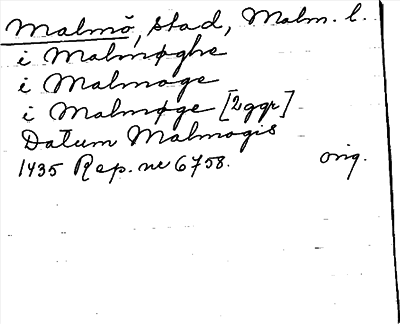 Malmö, stad, Malm. l.
i Malmøghe
i Malmoge
i Malmøge [2 ggr]
Datum Malmogis
1435 Rep. nr 6758. orig.